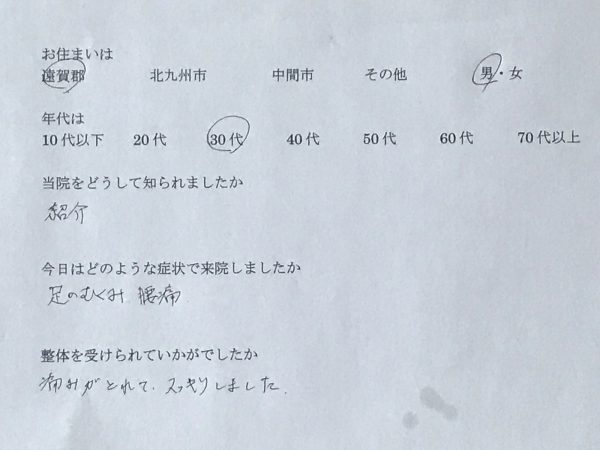 お住まいは
遠賀郡 北九州市 中間市 その他 男・女
年代は
10代以下 20代 30代 40代 50代 60代 70代以上
当院をどうして知られましたか
紹介
今日はどのような症状で来院しましたか
足のむくみ 腰痛
整体を受けられていかがでしたか
痛みがとれて、スッキリしました。